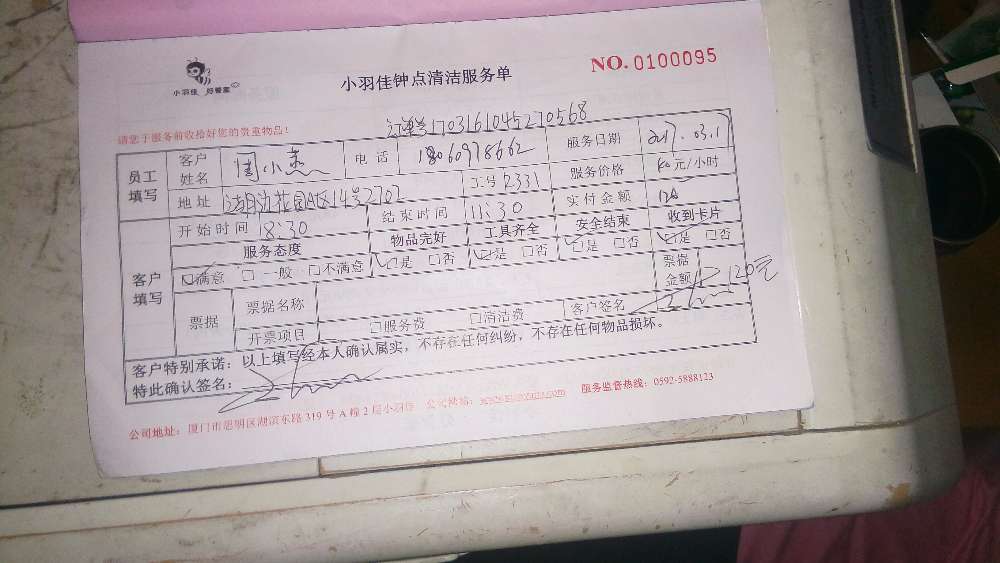 小羽佳 好管家
小羽佳钟点清洁服务单
NO.0100095
请您于服务前收拾好您的贵重物品!
订单号170316104527 0568
员工填写 客户姓名 周小燕 电话 18060978662 服务日期 2017.03.17
地址 湖边花园A区14号2702 工号 2331 服务价格 40元/小时
开始时间 18:30 结束时间 11:30 实付金额 120
客户填写 服务态度 物品完好 工具齐全 安全结束 收到卡片
☑满意 □一般 □不满意 ☑是 □否 ☑是 □否 ☑是 □否 ☑是 □否
票据 票据名称 票据金额 120元
开票项目 □服务费 □清洁费 客户签名
客户特别承诺:以上填写经本人确认属实,不存在任何纠纷,不存在任何物品损坏。
特此确认签名:
公司地址:厦门市思明区湖滨东路319号A幢2层小羽佳 公司网站: 服务监督热线:0592-5888123